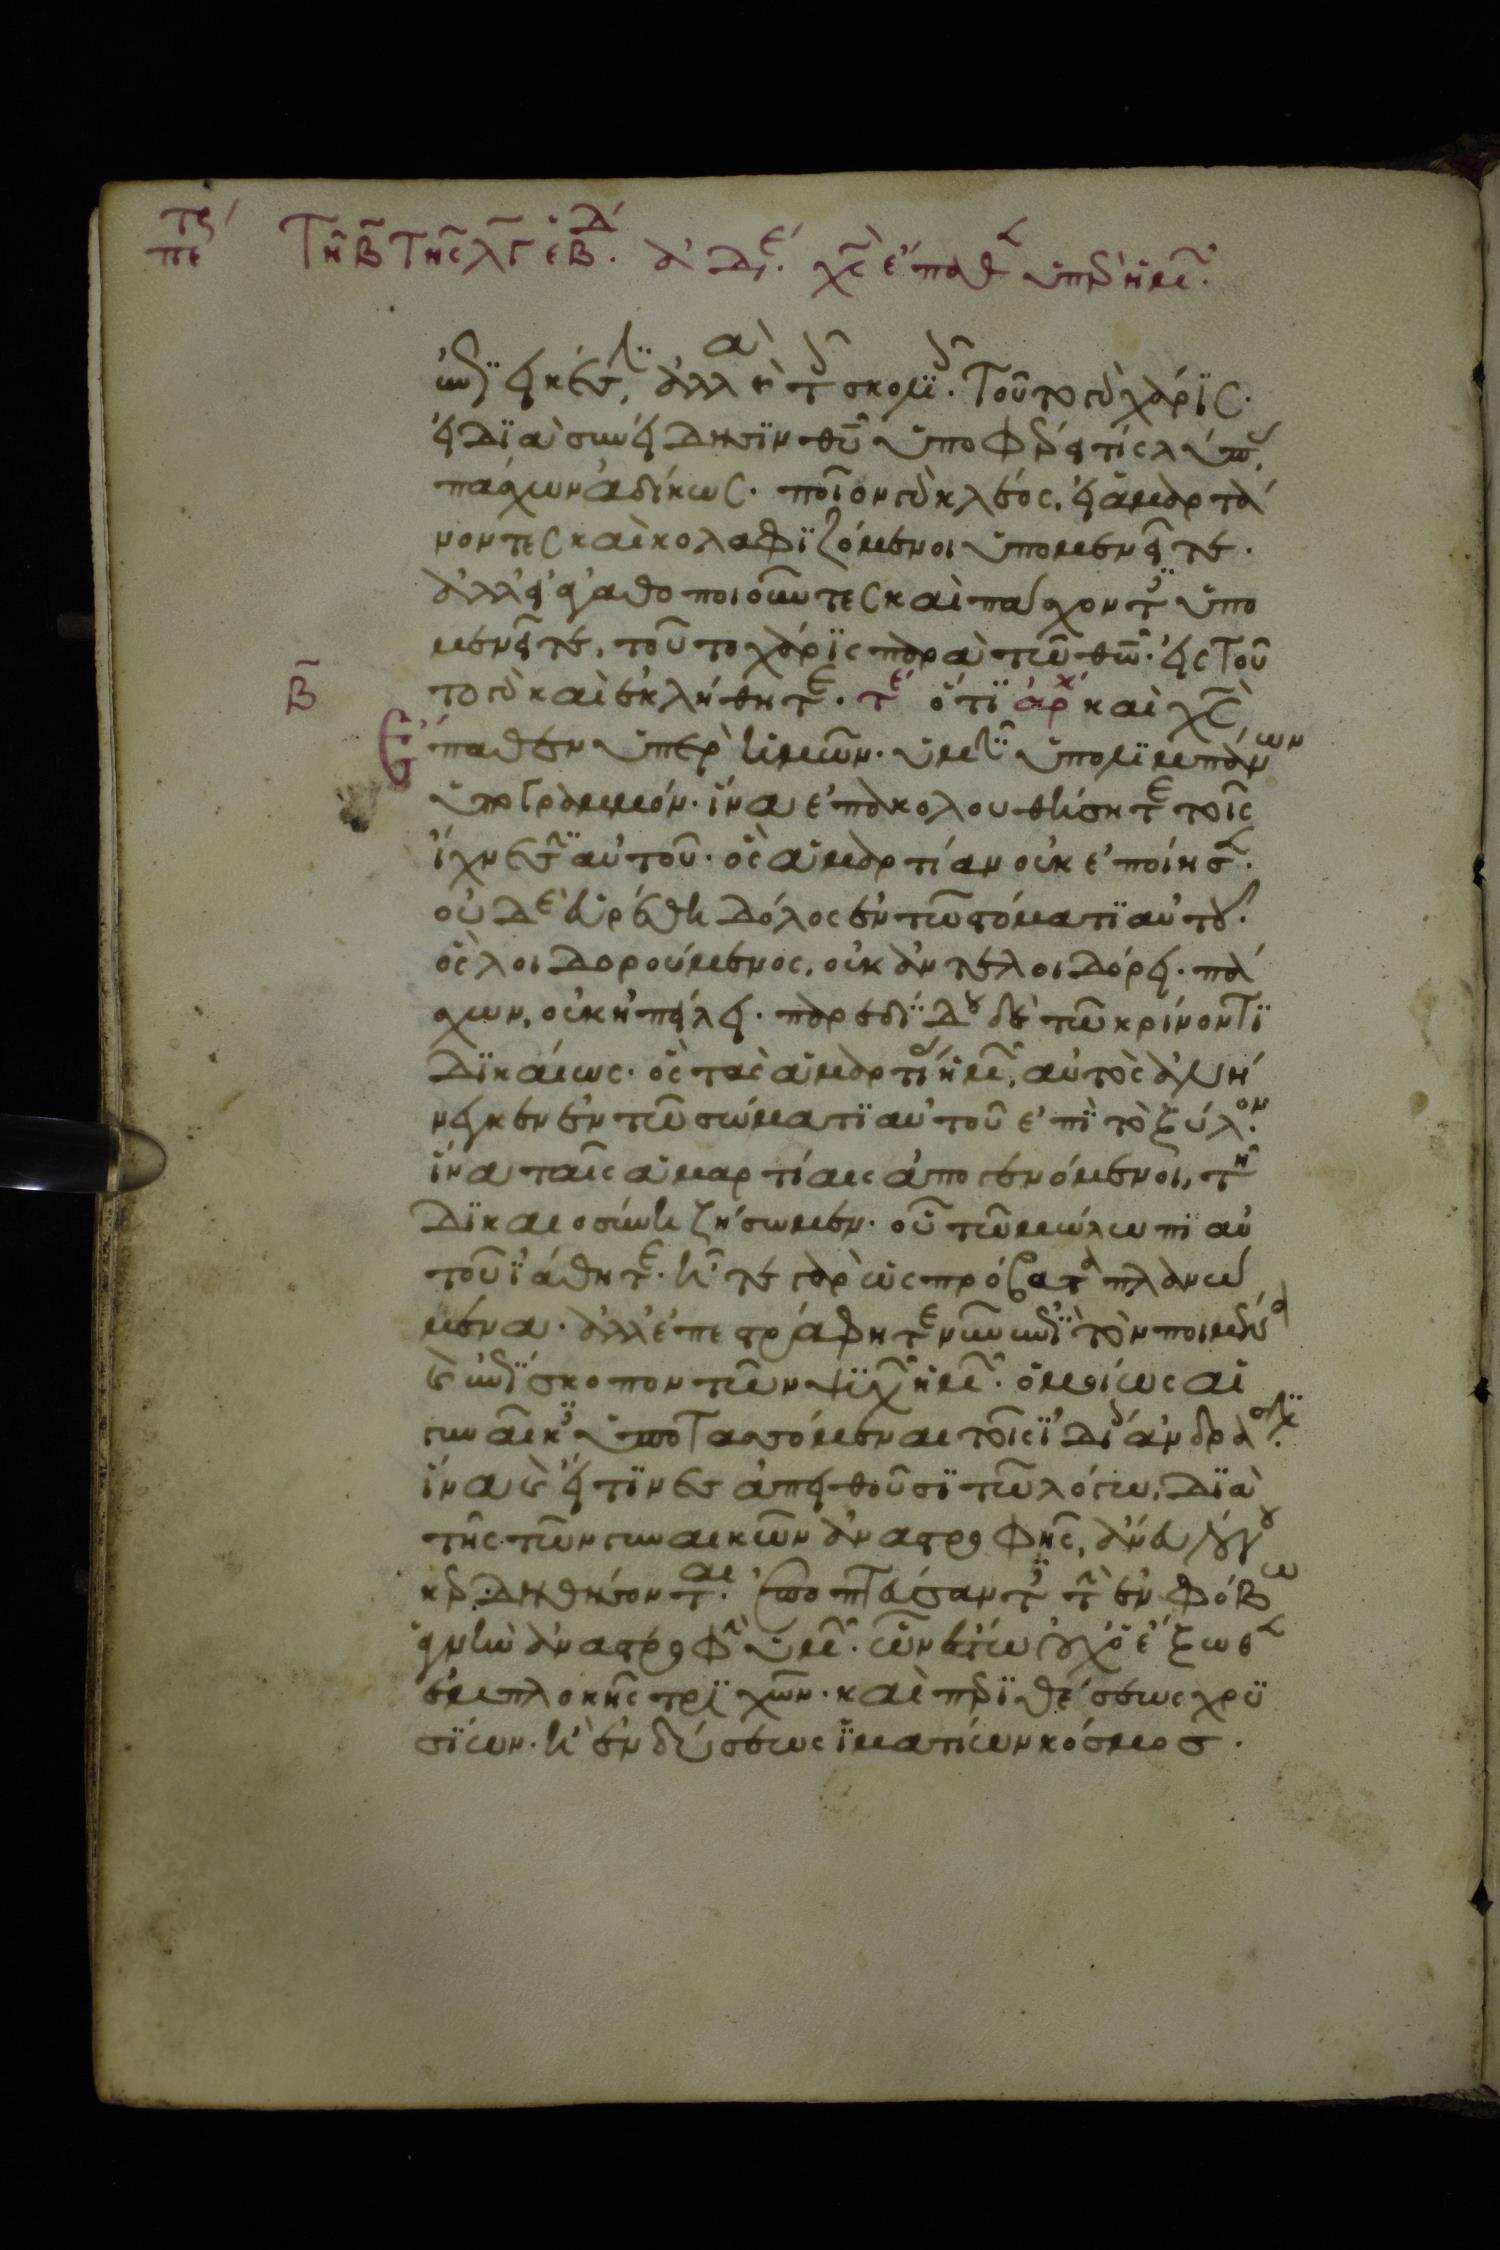 τς πε Τη β της λγ εβδ. ἀδε. χς ἔπαθ ὑπὲρ ἡμ.
ἐπιεικέσιν, ἀλλὰ καὶ τοῖς σκολιοῖς. τοῦτο γὰρ χάρις.
εἰ διὰ συνείδησιν θῦ ὑποφέρει τις λύπας,
πάσχων ἀδίκως. ποῖον γὰρ κλέος, εἰ ἁμαρτά
νοντες καὶ κολαφιζόμενοι ὑπομενεῖτε.
ἀλλ' εἰ ἀγαθοποιοῦντες καὶ πάσχοντες ὑπο
μενεῖτε, τοῦτο χάρις παρὰ τῶ θῶ. εἰς τοῦ
β το γὰρ καὶ ἐκλήθητε. τε ὅτι ἀρχ καὶ χς
ἔπαθεν ὑπὲρ ἡμῶν. ὑμῖν ὑπολιμπάνων
ὑπογραμμόν. ἵνα ἐπακολουθήσητε τοῖς
ἴχνεσιν αὐτοῦ. ὃς ἁμαρτίαν οὐκ ἐποίησεν.
οὐδὲ εὑρέθη δόλος ἐν τῶ στόματι αὐτοῦ.
ὃς λοιδορούμενος, οὐκ ἀντελοιδόρει. πά
σχων, οὐκ ἠπείλει. παρεδίδου δὲ τῶ κρίνοντι
δικαίως. ὃς τὰς ἁμαρτίας ἡμῶν, αὐτὸς ἀνή
νεγκεν ἐν τῶ σώματι αὐτοῦ ἐπὶ τὸ ξύλον.
ἵνα ταῖς ἁμαρτίαις ἀπογενόμενοι, τῆ
δικαιοσύνη ζήσωμεν. οὗ τῶ μώλωπι αὐ
τοῦ ἰάθητε. ἦτε γὰρ ὡς πρόβατα πλανώ
μενα. ἀλλ' ἐπεστράφητε νῦν ἐπὶ τὸν ποιμένα
καὶ ἐπίσκοπον τῶν ψυχῶν ἡμῶν. ὁμοίως αἱ
γυναῖκες ὑποτασσόμεναι τοῖς ἰδίοις ἀνδράσιν.
ἵνα καὶ εἴ τινες ἀπειθοῦσι τῶ λόγω, διὰ
τῆς τῶν γυναικῶν ἀναστροφῆς, ἄνευ λόγου
κερδηθήσονται. ἐποπτεύσαντες τὴν ἐν φόβω
ἁγνὴν ἀναστροφὴν ὑμῶν. ὧν ἔστω οὐχ ὁ ἔξωθεν
ἐμπλοκῆς τριχῶν. καὶ περιθέσεως χρυ
σίων. ἢ ἐνδύσεως ἱματίων κόσμος.